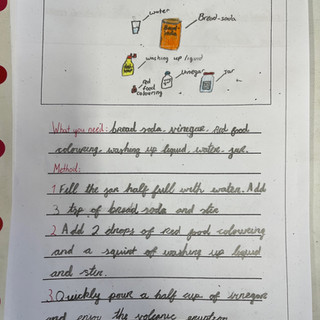 water
Bread-soda
washing up liquid
red food colouring
vinegar
Jar
What you need: bread soda, vinegar, red food
colouring, washing up liquid, water, jar.
Method:
1 Fill the jar half full with water. Add
3 tsp of bread soda and stir
2 Add 2 drops of red food colouring
and a squint of washing up liquid
and stir.
3 Quickly pour a half cup of vinegar
and enjoy the volcanic eruption